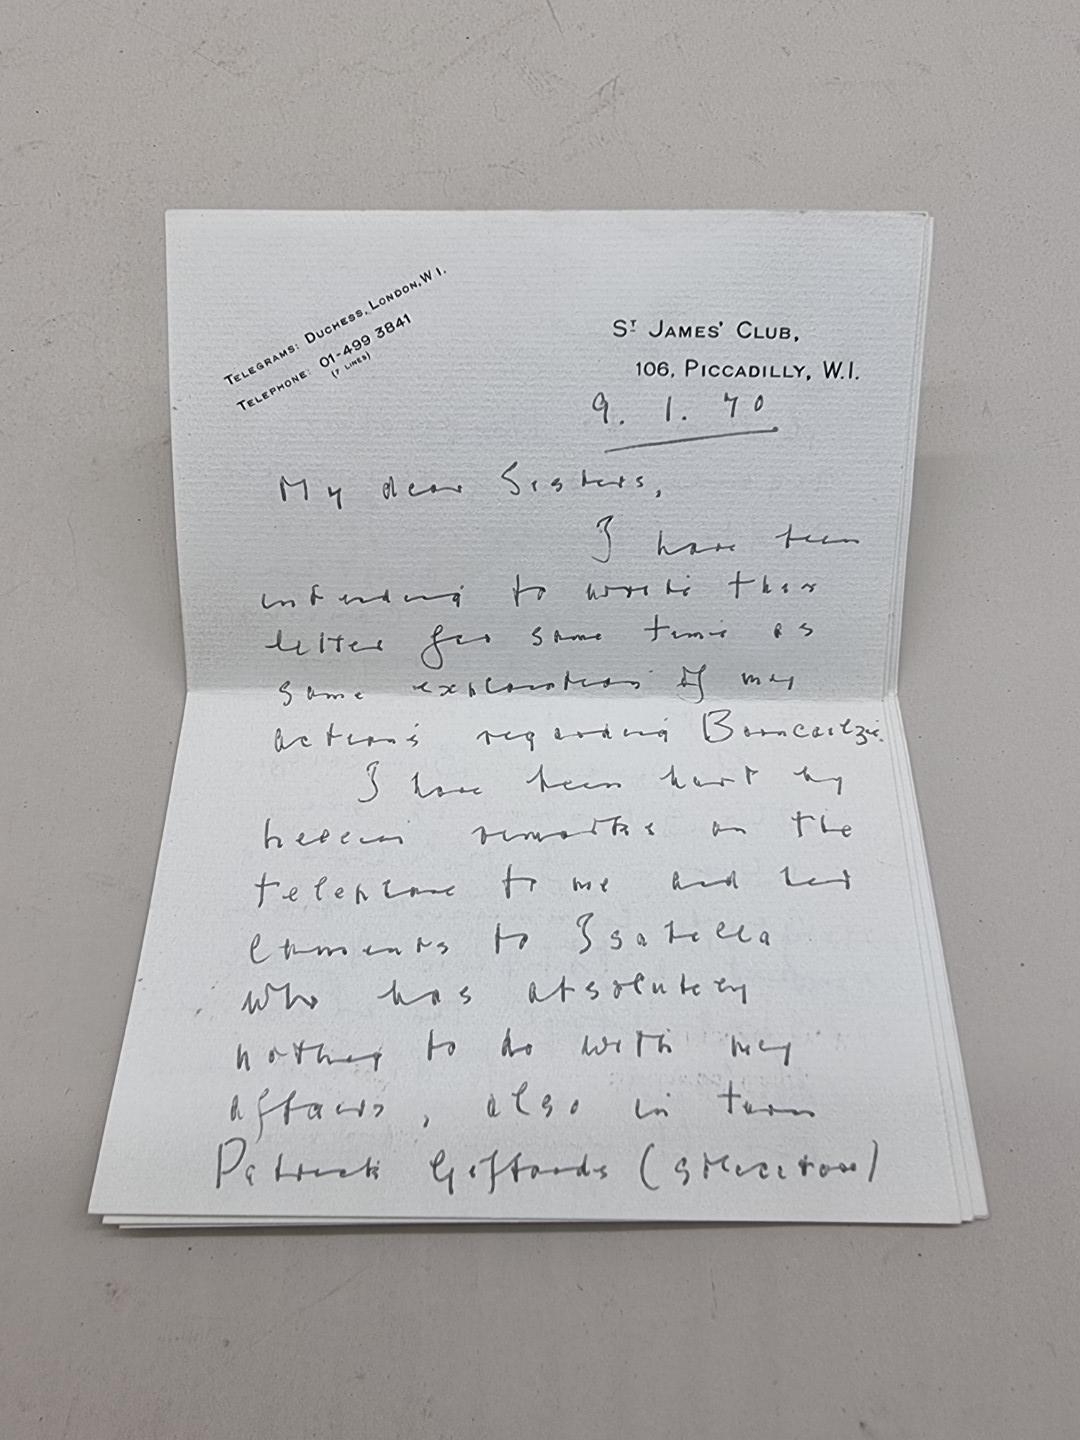 TELEGRAMS: DUCHESS, LONDON, W1.
TELEPHONE: 01-499 3841
(7 LINES)
ST JAMES' CLUB,
106, PICCADILLY, W.1.
9. 1. 70
My dear Sisters,
I have been
intending to write this
letter for some time as
some explanation of my
actions regarding
I have been hurt by
remarks on the
telephone to me and her
comments to Isabella
who has absolutely
nothing to do with my
affairs, also in turn
Patrick Giffords (solicitor)